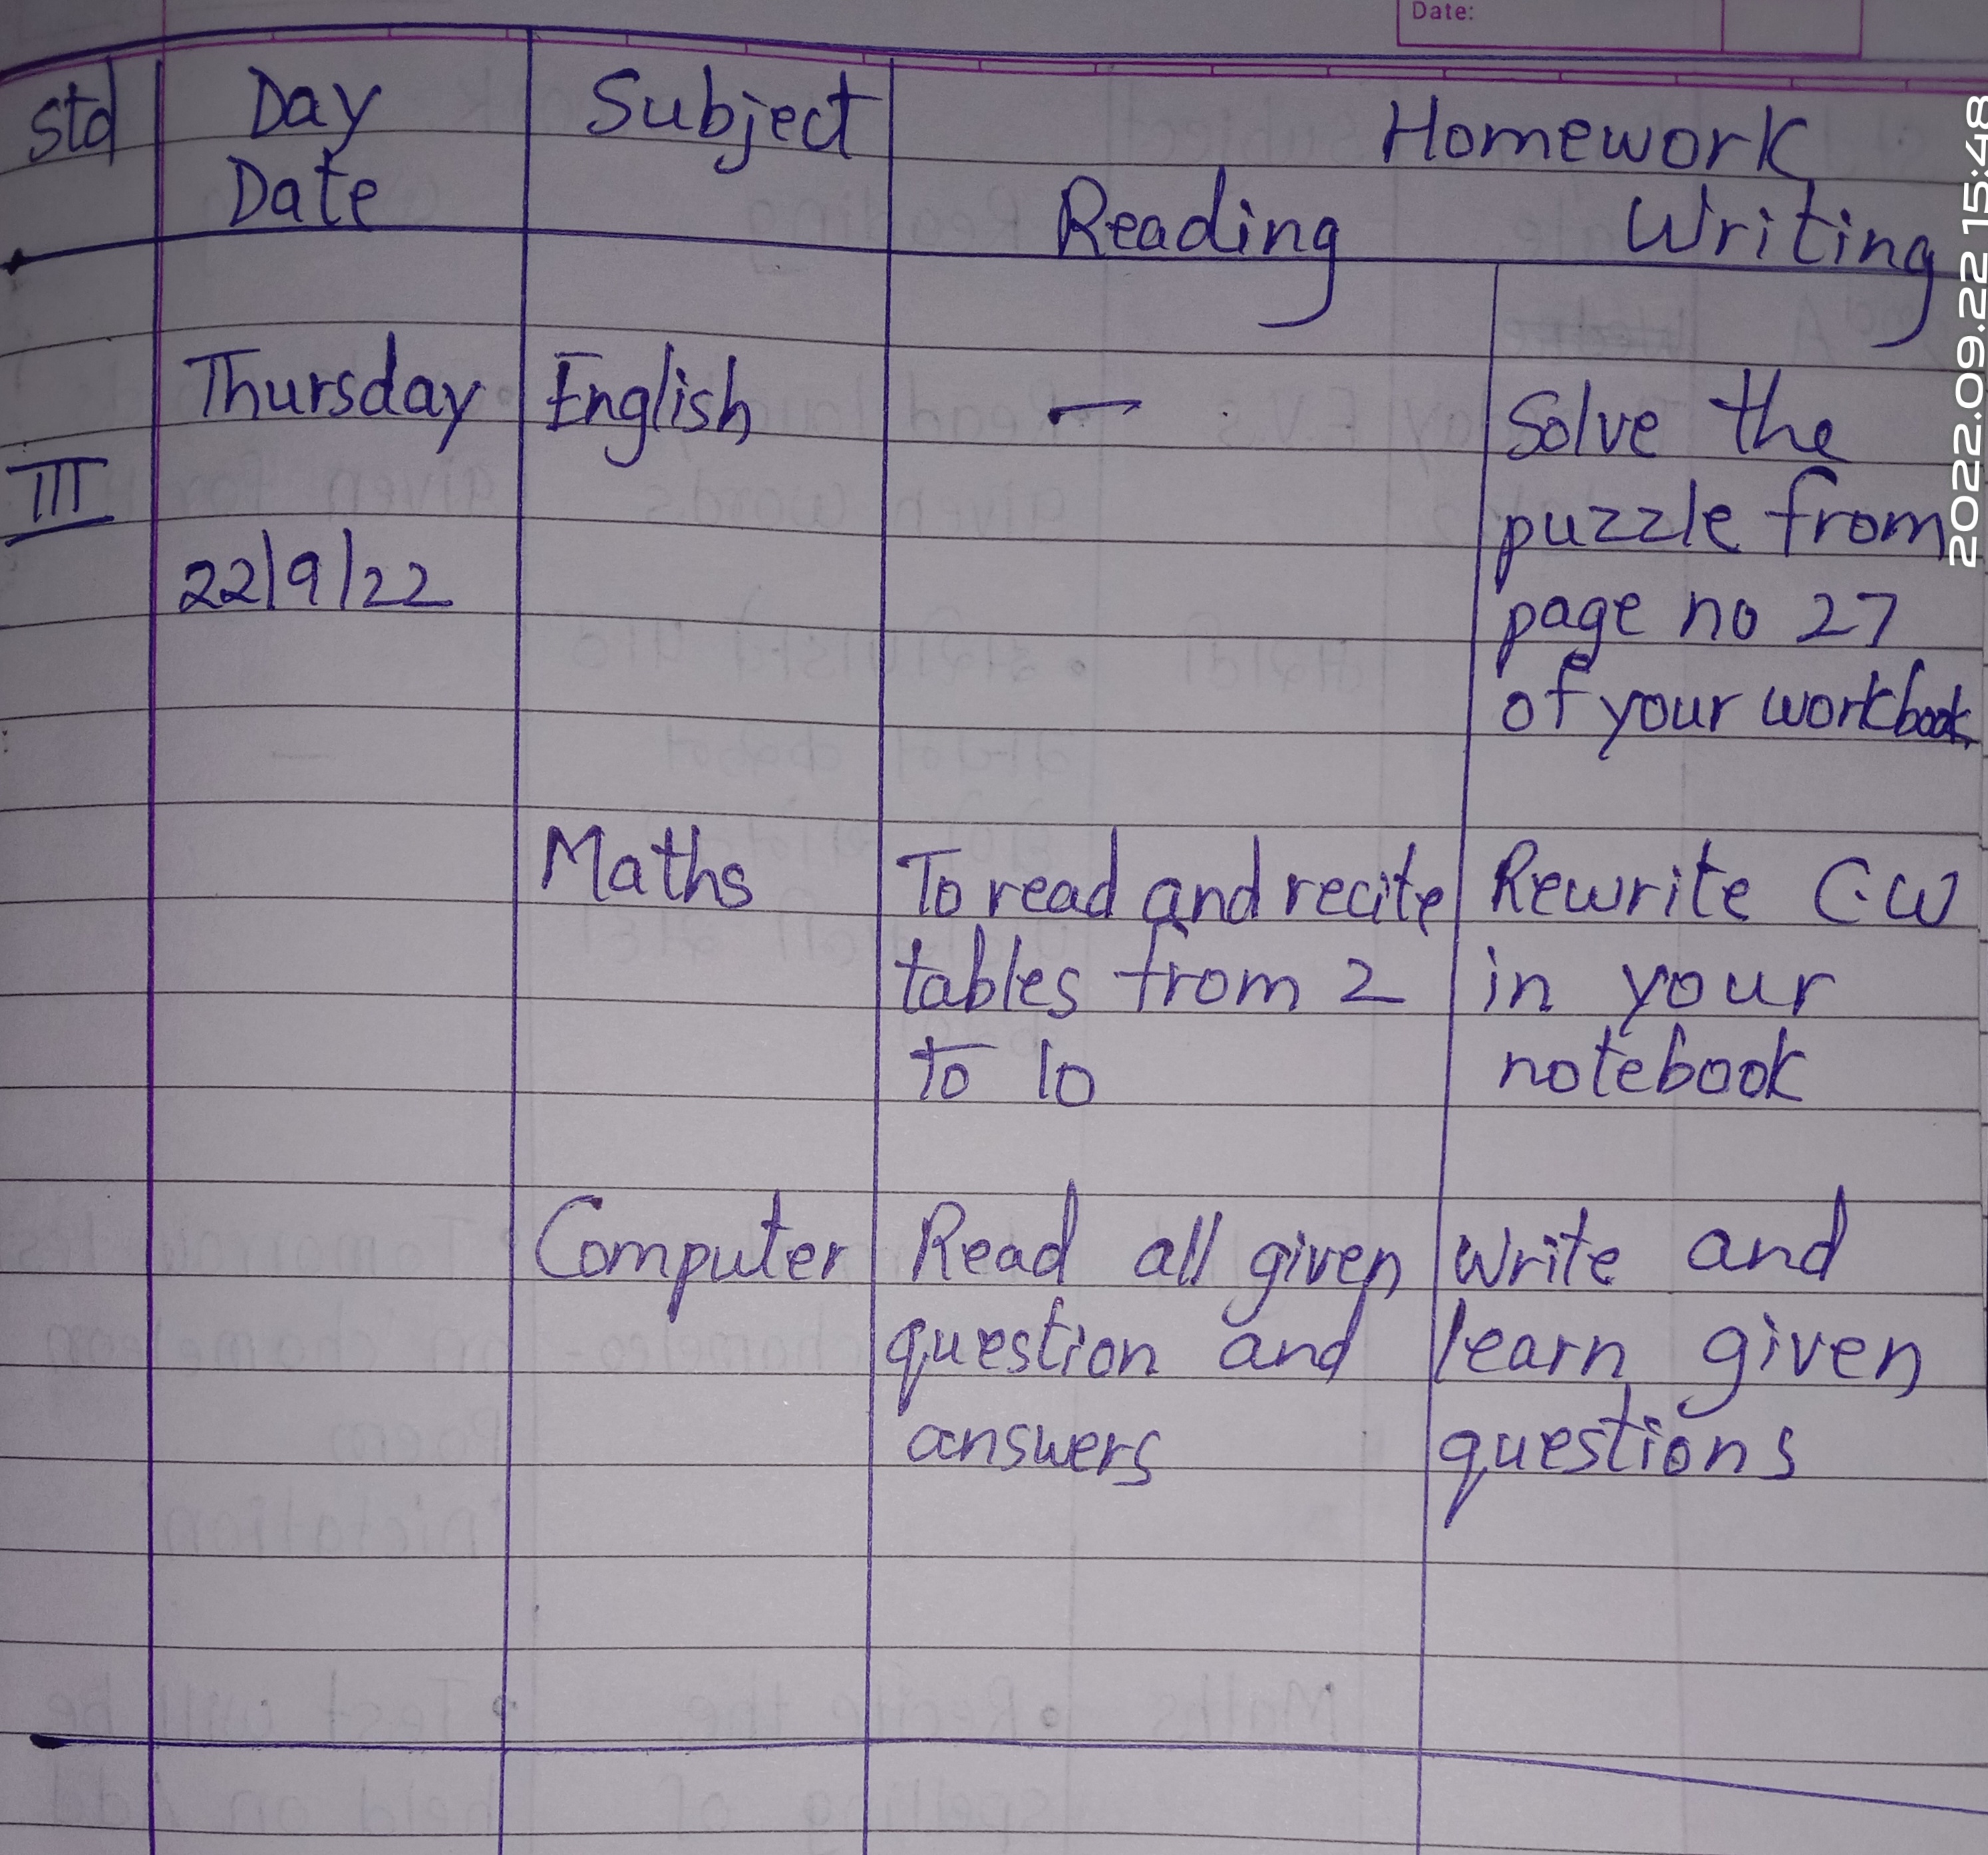 Date:
Std Day Subject Homework
Date Reading Writing
Thursday English — Solve the
III puzzle from
22/9/22 page no 27
of your workbook.
Maths To read and recite Rewrite C.W
tables from 2 in your
to 10 notebook
Computer Read all given Write and
question and learn given
answers questions
2022.09.22 15:48